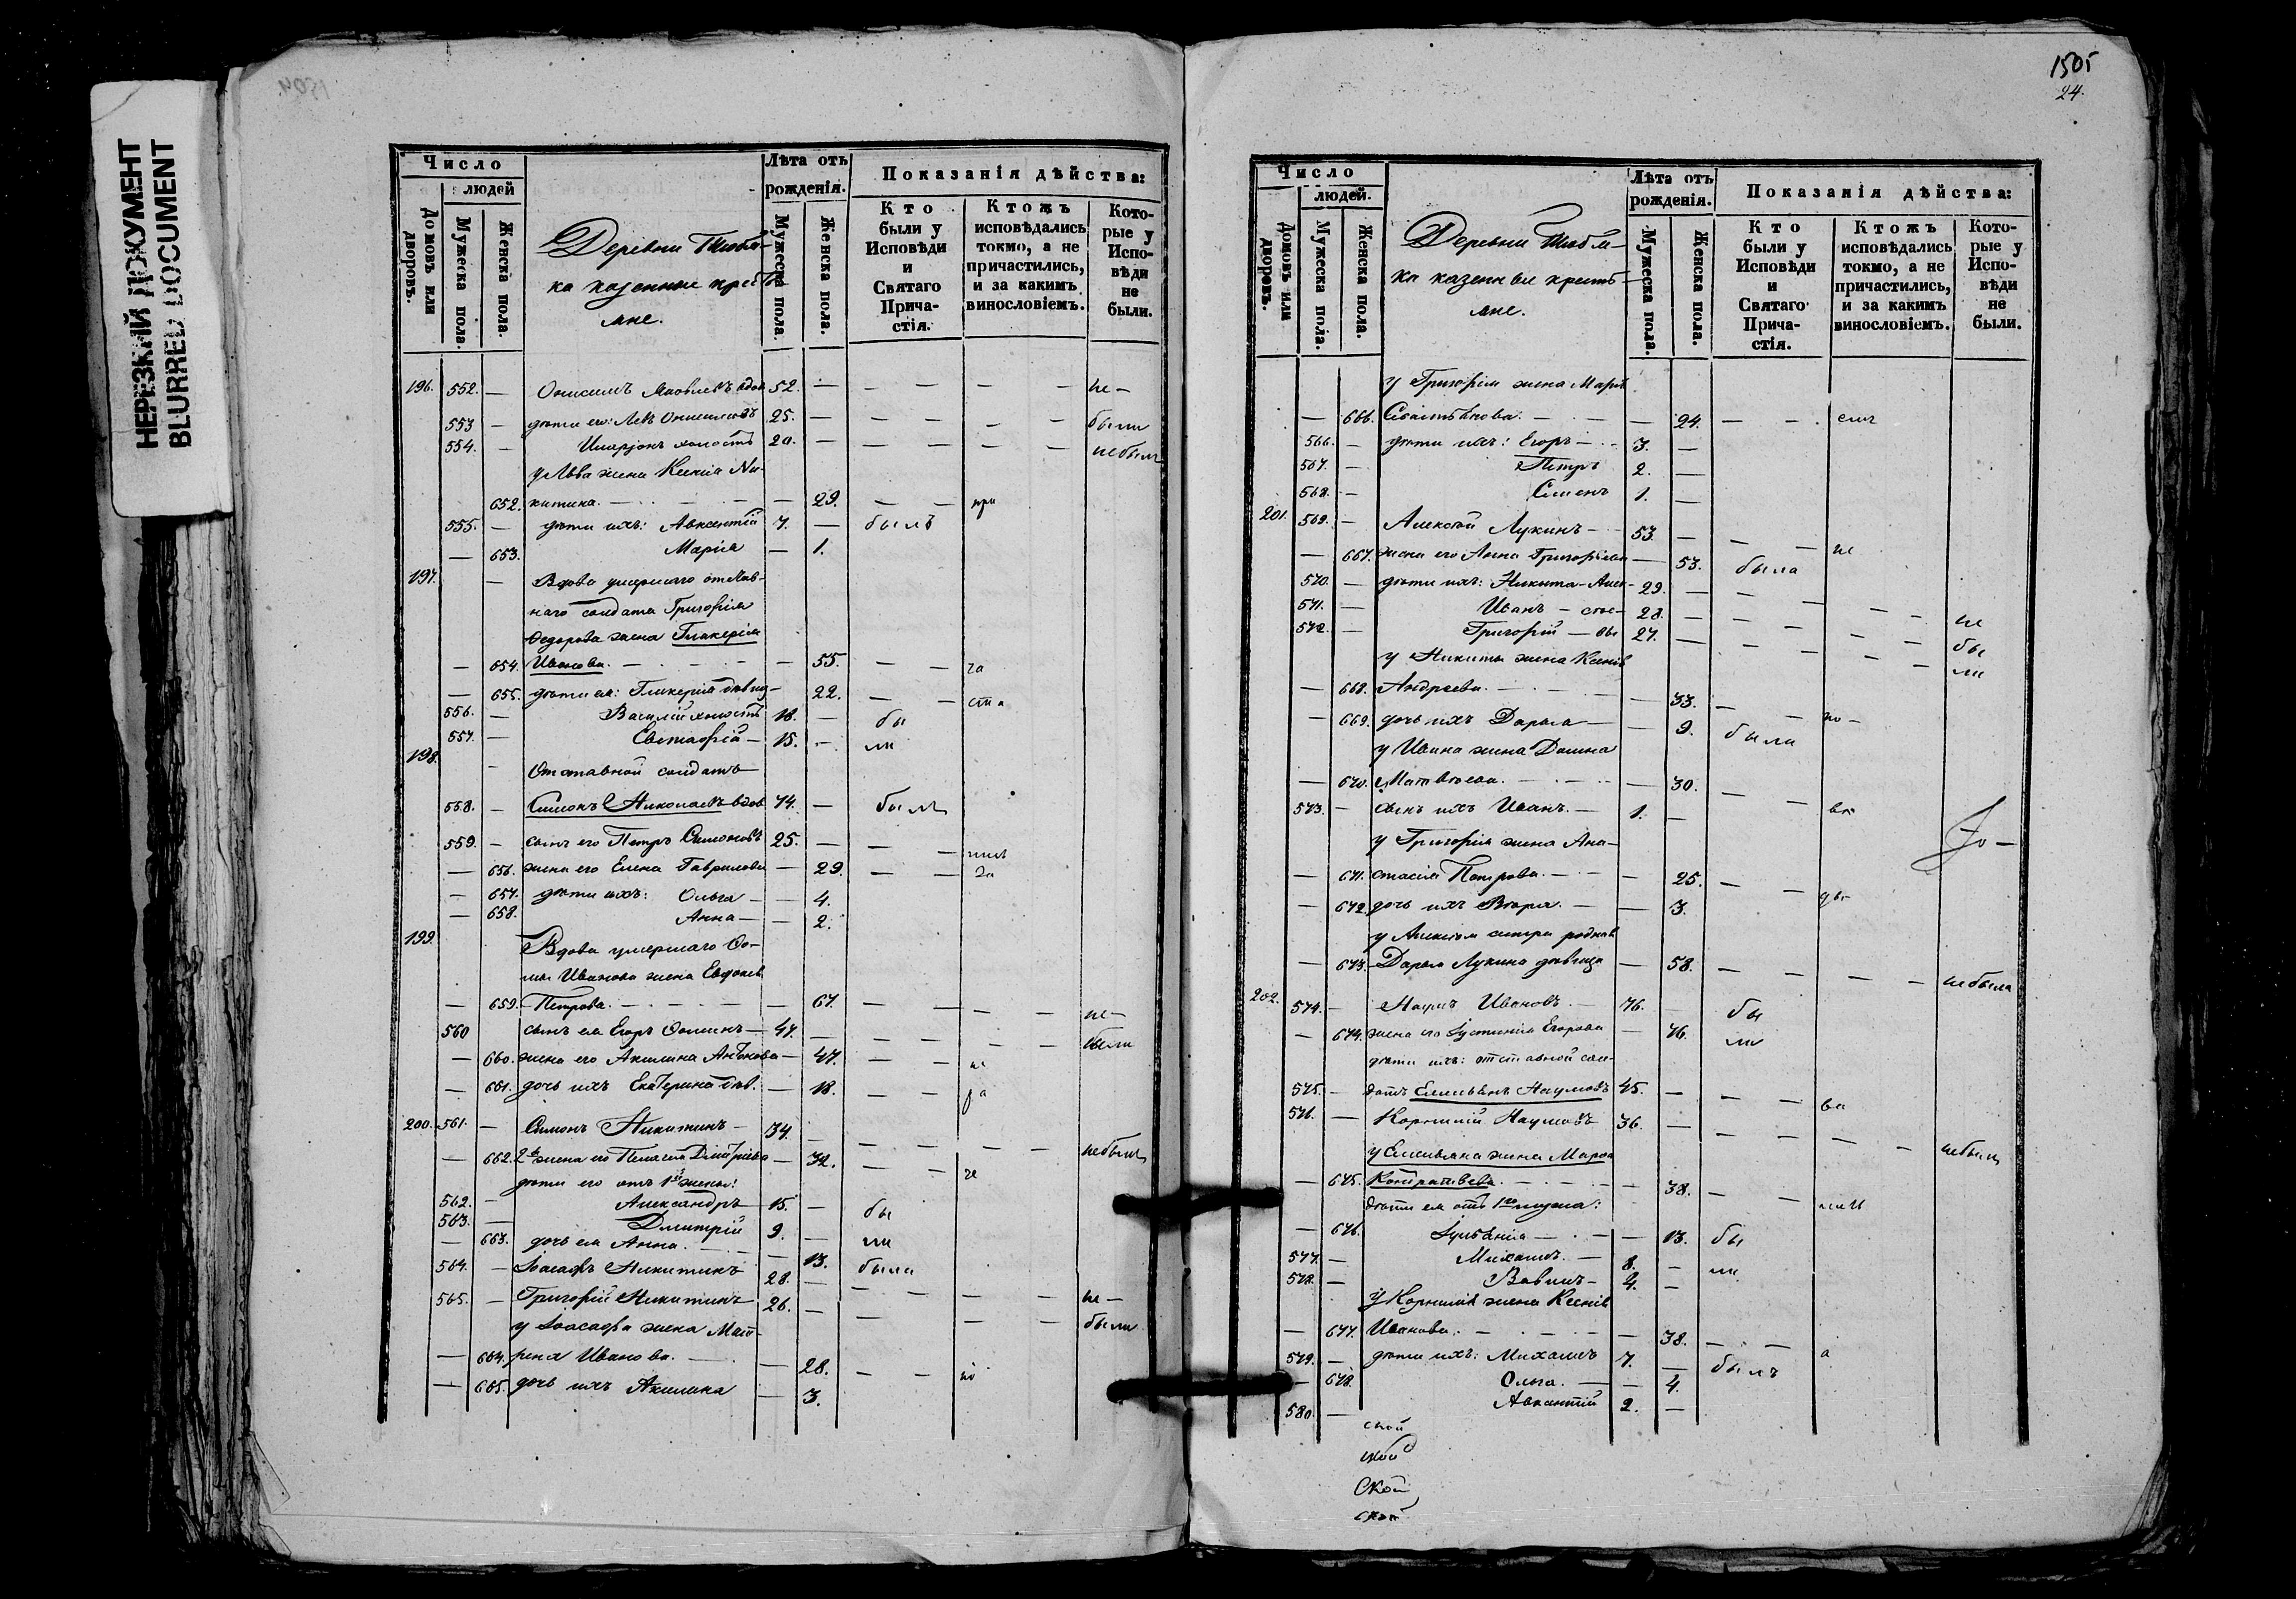 НЕРЕЗКИЙ ДОКУМЕНТ
BLURRED DOCUMENT
Число
людей
Домовъ или дворовъ.
Мужеска пола.
Женска пола.
Деревни
ка казенные кресть-
яне.
Лѣта отъ рожденія.
Мужеска пола.
Женска пола.
Показанія дѣйства:
Кто были у Исповѣди и Святаго Прича-стія.
Ктожъ исповѣдались токмо, а не причастились, и за какимъ винословіемъ.
Кото-рые у Испо-вѣди не были.
196. 552. — Онисимъ Яковлевъ вдов 52. — — — — — не —
553 — дѣти его: Левъ Онисимовъ 25. — — — — были
554. — Иларіонъ холостъ 20. — — — — — не былъ
у Льва жена Ксенія Ни-
652. китина. — — — 29. — — при
555. — дѣти ихъ: Авксентій 7. — былъ
— 653. Марія — 1.
197. — Вдова умершаго отстав-
наго солдата Григорія
Федорова жена Гликерія
— 654. Иванова. — — — 55. — — ча
— 655. дѣти ея: Гликерія дѣвиц — 22. — — сти
556. — Василій холостъ 18. — бы
557. — Евстафій — 15. — ли
198. — Отставной солдатъ
558. — Симонъ Николаевъ вдов 74. — былъ
559. — сынъ его Петръ Симоновъ 25. — — —
— 656. жена его Елена Гаврилова — 29. — — за
— 657. дѣти ихъ: Ольга — — 4.
— 658. Анна — — 2.
199. Вдова умершаго Фо-
мы Иванова жена Евдокія
— 659. Петрова. — — — — 67. — — — — не —
560 сынъ ея Егоръ Фоминъ — 47. — — — — — были
— 660. жена его Акилина Антонова — 47. — — не
— 661. дочь ихъ Екатерина дѣв. — 18. — — ра
200. 561. — Симонъ Никитинъ — 34. — — — — — не былъ
— 662. 2я жена его Пелагея Дмитріева — 32. — — че
дѣти его отъ 1й жены:
562. — Александръ 15. — бы
563. — Дмитрій 9. — ли
— 663. дочь ея Анна. — — 13. была
564. — Іоасафъ Никитинъ 28. — — — — — не —
565. — Григорій Никитинъ 26. — — — — были
у Іоасафа жена Мат-
— 664. рена Иванова. — — 28. — — по
— 665. дочь ихъ Акилина — 3.
1505
24.
Число
людей.
Домовъ или дворовъ.
Мужеска пола.
Женска пола.
Деревни
ка казенные кресть-
яне.
Лѣта отъ рожденія.
Мужеска пола.
Женска пола.
Показанія дѣйства:
Кто были у Исповѣди и Святаго Прича-стія.
Ктожъ исповѣдались токмо, а не причастились, и за какимъ винословіемъ.
Кото-рые у Испо-вѣди не были.
у Григорія жена Марія
— 666. Севастьянова. — — — 24. — —
566. — дѣти ихъ: Егоръ — 3. —
567. — Петръ 2. —
568. — Симонъ 1. —
201. 569. — Алексѣй Лукинъ — 53. — — — не
— 667. жена его Анна Григорьева — 53. была
570. — дѣти ихъ: Никита — 29. — — — — — не
571. — Иванъ — 28. — — — — — бы
572. — Григорій — 27. — — — — — ли
у Никиты жена Ксенія
— 668. Андреева. — — — 33. — — по —
— 669. дочь ихъ Дарья — — 9. были
у Ивана жена Домна
— 670. Матвѣева. — — — 30. — —
573. — сынъ ихъ Иванъ. — 1. —
у Григорія жена Ана-
— 671. стасія Петрова. — — 25. — —
— 672. дочь ихъ Вѣра. — — 3.
у Алексѣя сестра родная
— 673. Дарья Лукина дѣвица — 58. — — — — не была
202. 574. — Наумъ Ивановъ. — 76. бы
— 674. жена его Іустинія Егорова — 76. ли
дѣти ихъ: отставной сол-
575. — датъ Емельянъ Наумовъ 45. — — — ва
576. — Корнилій Наумовъ 36. — — — — — не былъ
у Емельяна жена Марфа
— 675. Кондратьева. — — — — 38. — —
дѣти ея отъ 1го мужа:
— 676. Іуліанія — — — 13. бы
577. — Михаилъ. — 8. — ли
578. — Вавилъ — 4. —
у Корнилія жена Ксенія
— 677. Иванова. — — — — 38. — — а
579. — дѣти ихъ: Михаилъ 7. — былъ
— 678. Ольга. — — 4.
580. — Авксентій 2. —
ской
ской
Ской
ской